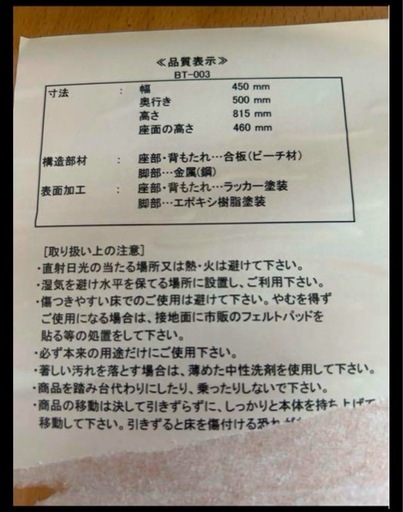 ≪品質表示≫
BT-003
寸法 : 幅 450 mm
奥行き 500 mm
高さ 815 mm
座面の高さ 460 mm
構造部材 : 座部・背もたれ…合板(ビーチ材)
脚部…金属(鋼)
表面加工 : 座部・背もたれ…ラッカー塗装
脚部…エポキシ樹脂塗装
[取り扱い上の注意]
・直射日光の当たる場所又は熱・火は避けて下さい。
・湿気を避け水平を保てる場所に設置し、ご利用下さい。
・傷つきやすい床でのご使用は避けて下さい。やむを得ず
ご使用になる場合は、接地面に市販のフェルトパッドを
貼る等の処置をして下さい。
・必ず本来の用途だけにご使用下さい。
・著しい汚れを落とす場合は、薄めた中性洗剤を使用して下さい。
・商品を踏み台代わりにしたり、乗ったりしないで下さい。
・商品の移動は決して引きずらずに、しっかりと本体を持ち上げて
移動して下さい。引きずると床を傷付ける恐れが